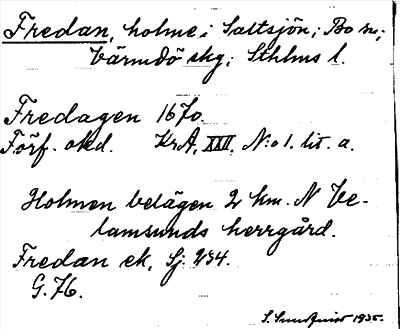 Fredan, holme i Saltsjön; Bo sn;
Värmdö skg; Sthlms l.
Fredagen 1670.
Förf. okd. KrA, XXII, N:o 1. lit. a.
Holmen belägen 2 km. N Ve-
lamsunds herrgård.
Fredan ek, Sj: 234.
G. 76.
S. Sundquist 1935.